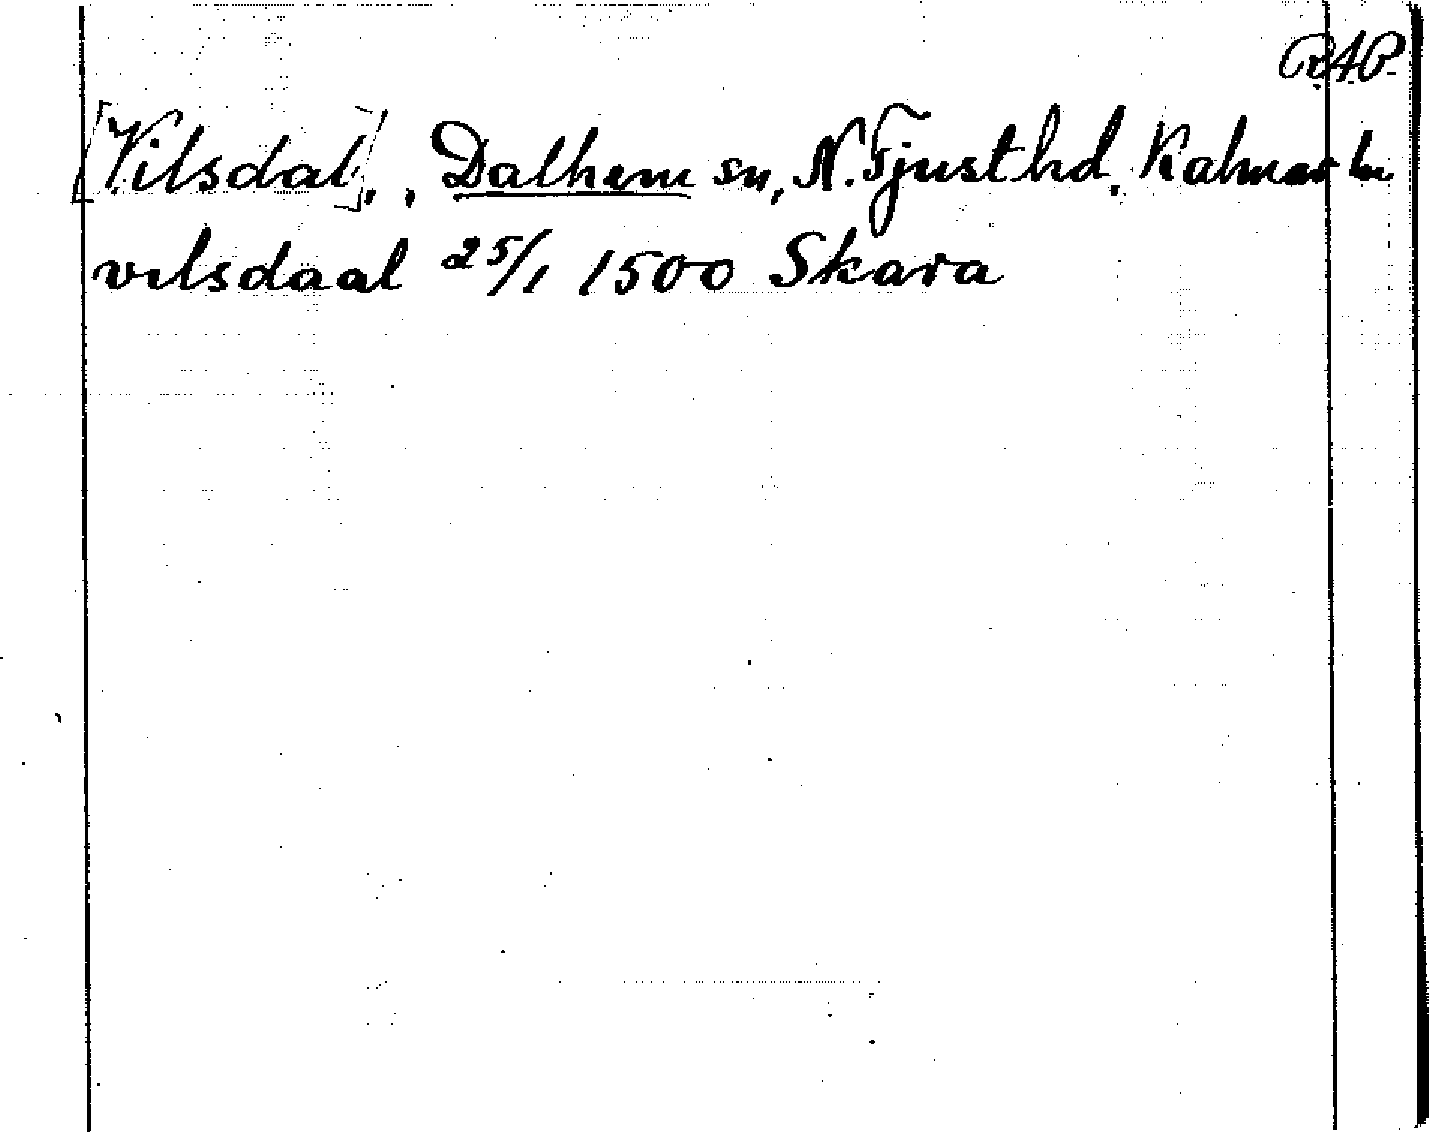 RAP
[Vilsdal], , Dalhem sn, N. Tjust hd, Kalmar ln
vilsdaal 25/1 1500 Skara